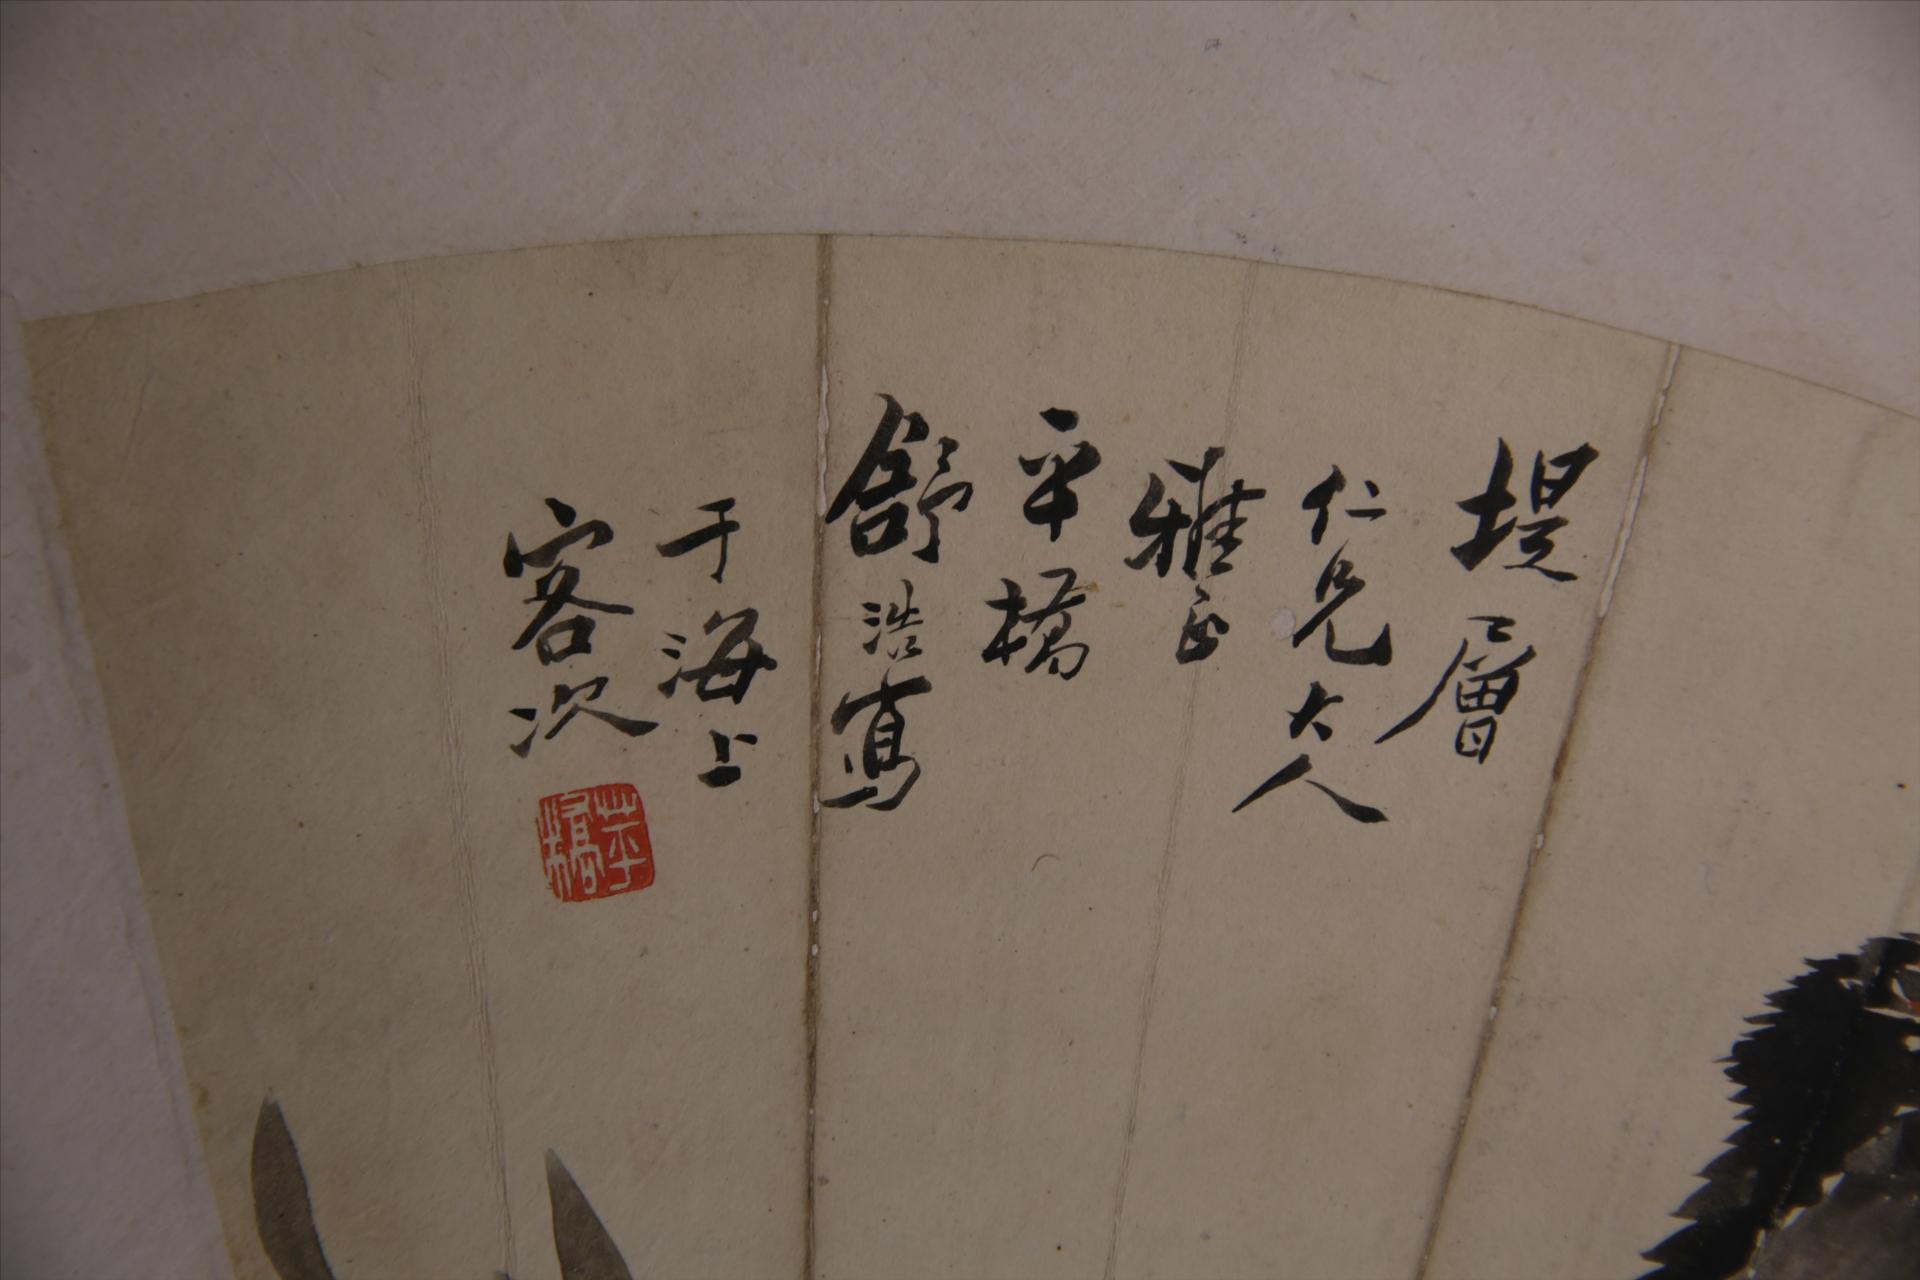 堤層
仁兄大人
雅正
平橋
舒浩寫
于海上
客次
萍橋